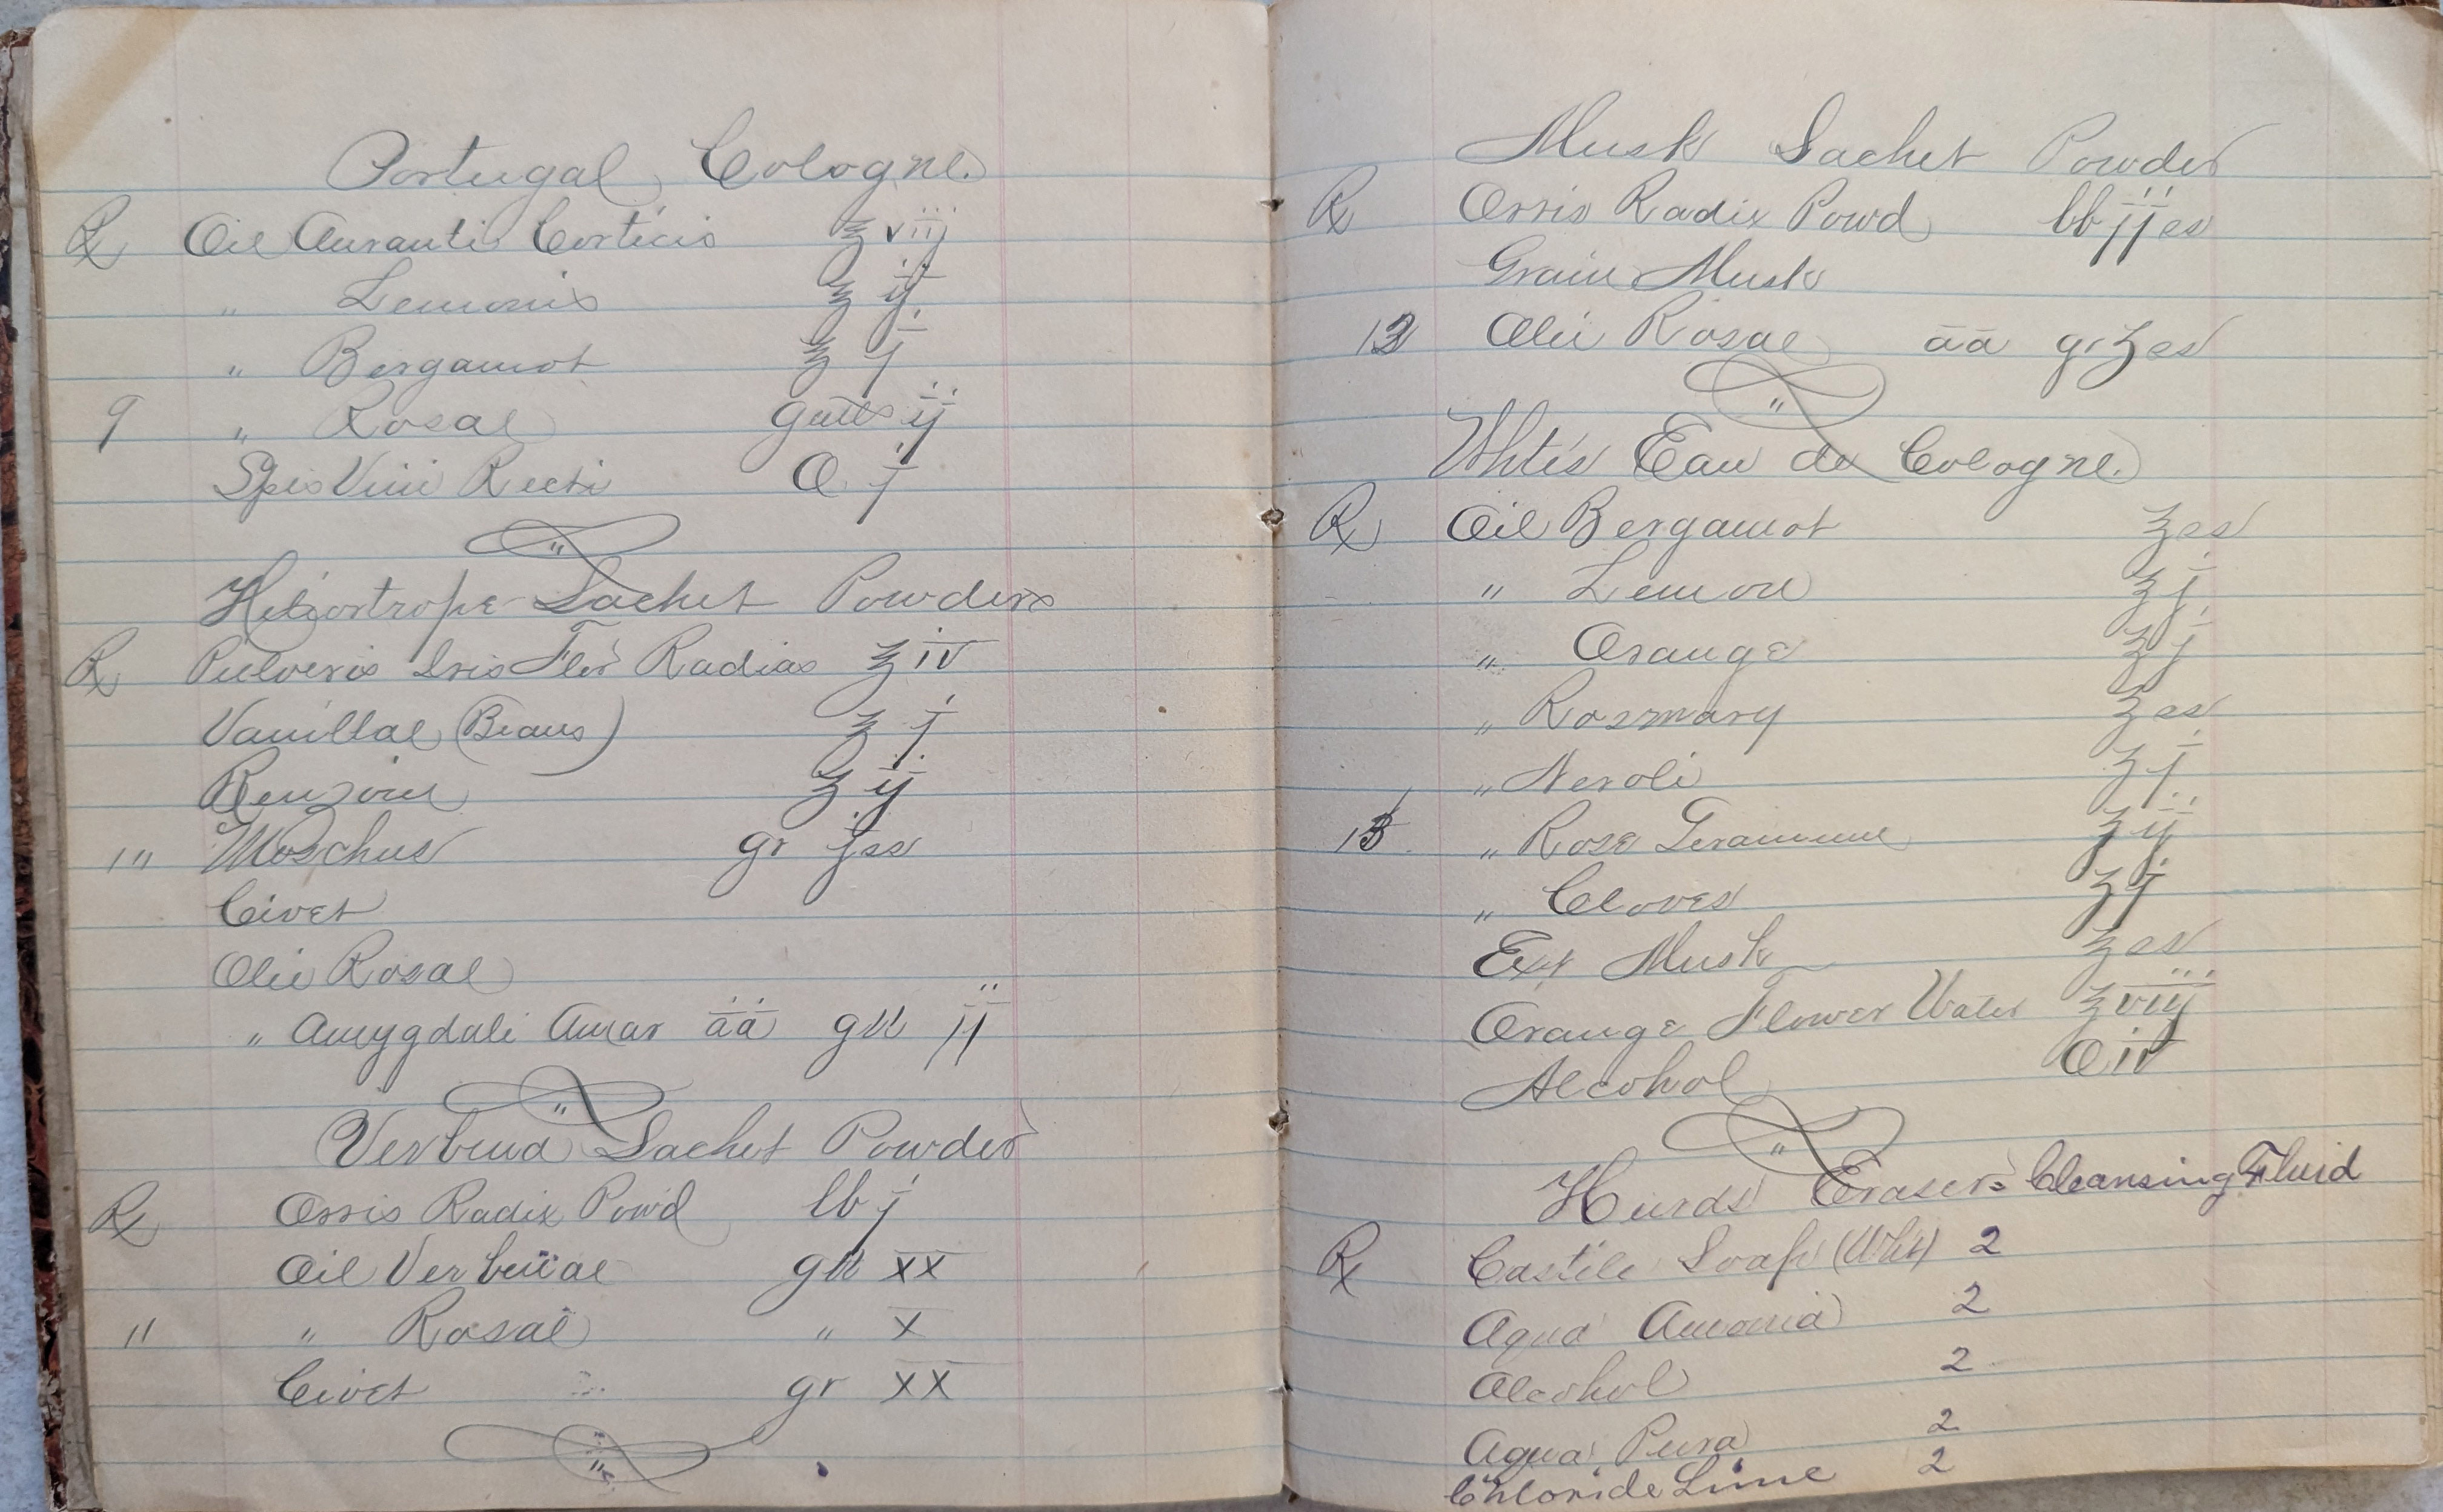 Portugal Cologne.
Rx Oil Auranti Corticis ℥ viij
" Lemonis ʒ ij
" Bergamot ʒ j
9 " Rosae gutts ij
Spis Vini Recti O j
"
Heliortrope Sachet Powders
Rx Pulveris Iris Flor Radias ℥ iv
Vanillae (Beans) ʒ j
Benzoin ʒ ij
Moschus gr jss
Civet
Olii Rosae
" Amygdali Amar āā gtt jj
"
Verbena Sachet Powder
Rx Orris Radix Powd lb j
Oil Verbenae gtt xx
11 " Rosae " x
Civet gr xx
Musk Sachet Powder
Rx Orris Radix Powd lb jjss
Grain Musk
Olii Rosae āā gr ʒss
"
Whtes Eau de Cologne.
Rx Oil Bergamot ℥ss
" Lemon ʒ j
" Orange ʒ j
" Rosmary ʒss
" Neroli ʒ j
" Rose Geranium ʒ ij
" Cloves ʒ j
Ext Musk ℥ss
Orange Flower Water ℥ viij
Alcohol O iv
"
Hurds Eraser = Cleansing Fluid
Rx Castile Soap (Wht) 2
Aqua Amonia 2
Alcohol 2
Aqua Pura 2
Chloride Lime 2